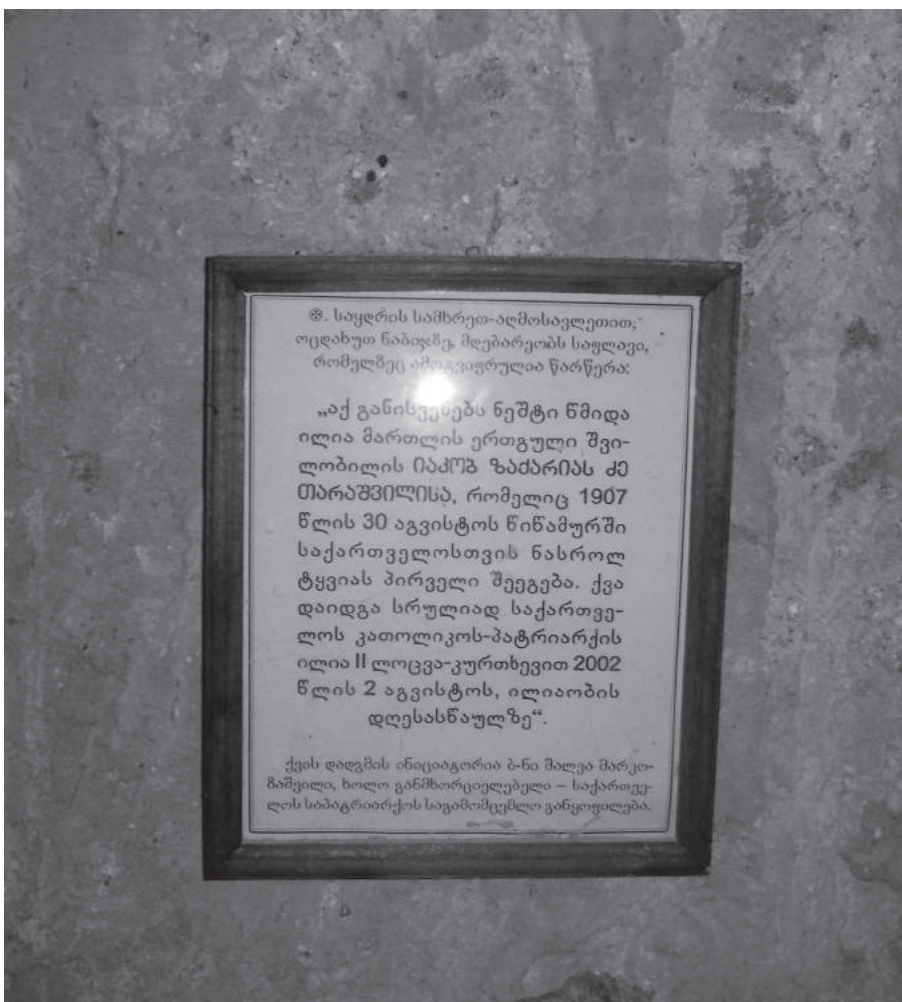 ⊕. საყდრის სამხრეთ-აღმოსავლეთით,
ოცდახუთ ნაბიჯზე, მდებარეობს საფლავი,
რომელზეც ამოტვიფრულია წარწერა:
„აქ განისვენებს ნეშტი წმიდა
ილია მართლის ერთგული შვი-
ლობილის იაკობ ზაქარიას ძე
თარაშვილისა, რომელიც 1907
წლის 30 აგვისტოს წიწამურში
საქართველოსთვის ნასროლ
ტყვიას პირველი შეეგება. ქვა
დაიდგა სრულიად საქართვე-
ლოს კათოლიკოს-პატრიარქის
ილია II ლოცვა-კურთხევით 2002
წლის 2 აგვისტოს, ილიაობის
დღესასწაულზე“.
ქვის დადგმის ინიციატორია ბ-ნი შალვა მარკო-
ზაშვილი, ხოლო განმხორციელებელი – საქართვე-
ლოს საპატრიარქოს საგამომცემლო განყოფილება.